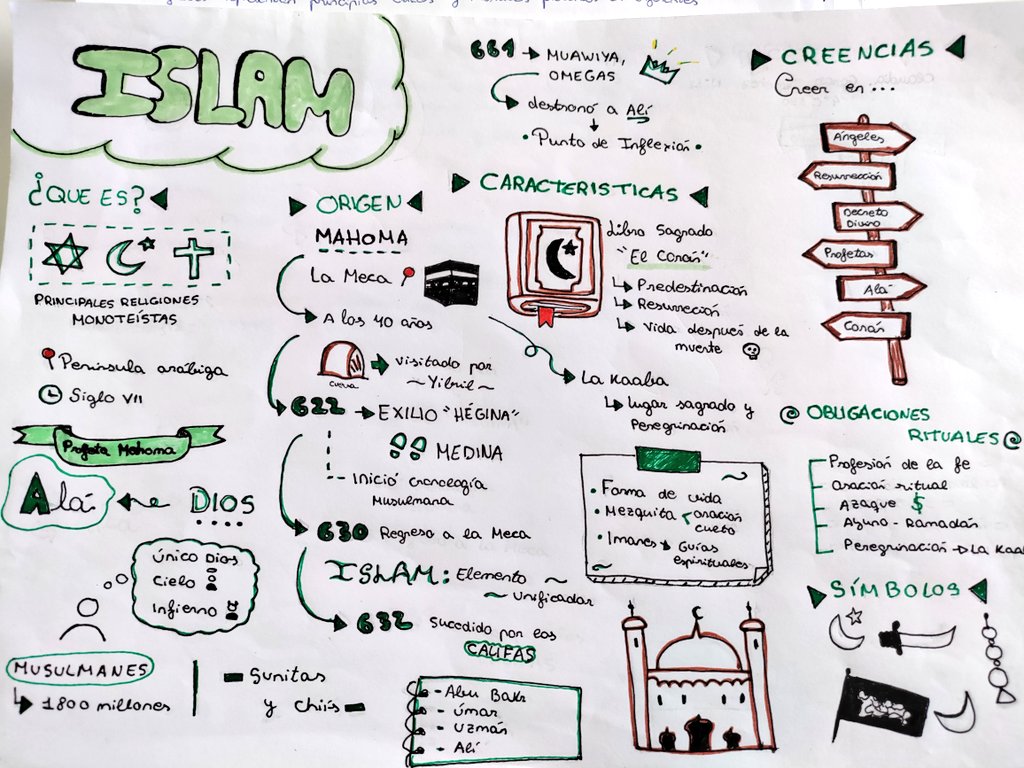 ISLAM
¿QUE ES?
PRINCIPALES RELIGIONES
MONOTEÍSTAS
Península arábiga
Siglo VII
Profeta Mahoma
Alá
DIOS
Único Dios
Cielo
Infierno
MUSULMANES
1800 millones
Sunitas
y chiís
ORIGEN
MAHOMA
La Meca
A los 40 años
CUEVA
visitado por
~ Yibril ~
622 → EXILIO "HÉGINA"
MEDINA
Inició cronología
musulmana
630 Regresa a la Meca
ISLAM: Elemento ~
~ Unificador
632 Sucedido por los
CALIFAS
- Abu Bakr
- Úmar
- Uzmán
- Alí
661 → MUAWIYA,
OMEGAS
destronó a Alí
• Punto de Inflexión •
CARACTERISTICAS
Libro Sagrado
"El Corán"
Predestinación
Resurrección
Vida después de la
muerte
La Kaaba
lugar sagrado y
Peregrinación
• Forma de vida
• Mezquita oración
culto
• Imanes → Guías
espirituales
CREENCIAS
Creer en...
Ángeles
Resurrección
Decreto
Divino
Profetas
Alá
Corán
@ OBLIGACIONES
RITUALES @
Profesión de la fe
Oración ritual
Azaque $
Ayuno - Ramadán
Peregrinación → La Kaab
SÍMBOLOS